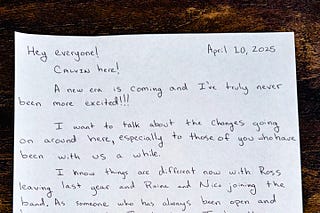 Hey everyone! April 10, 2025
Calvin here!
A new era is coming and I've truly never
been more excited!!!
I want to talk about the changes going
on around here, especially to those of you who have
been with us a while.
I know things are different now with Ross
leaving last year and Raine and Nico joining the
band. As someone who has always been open and